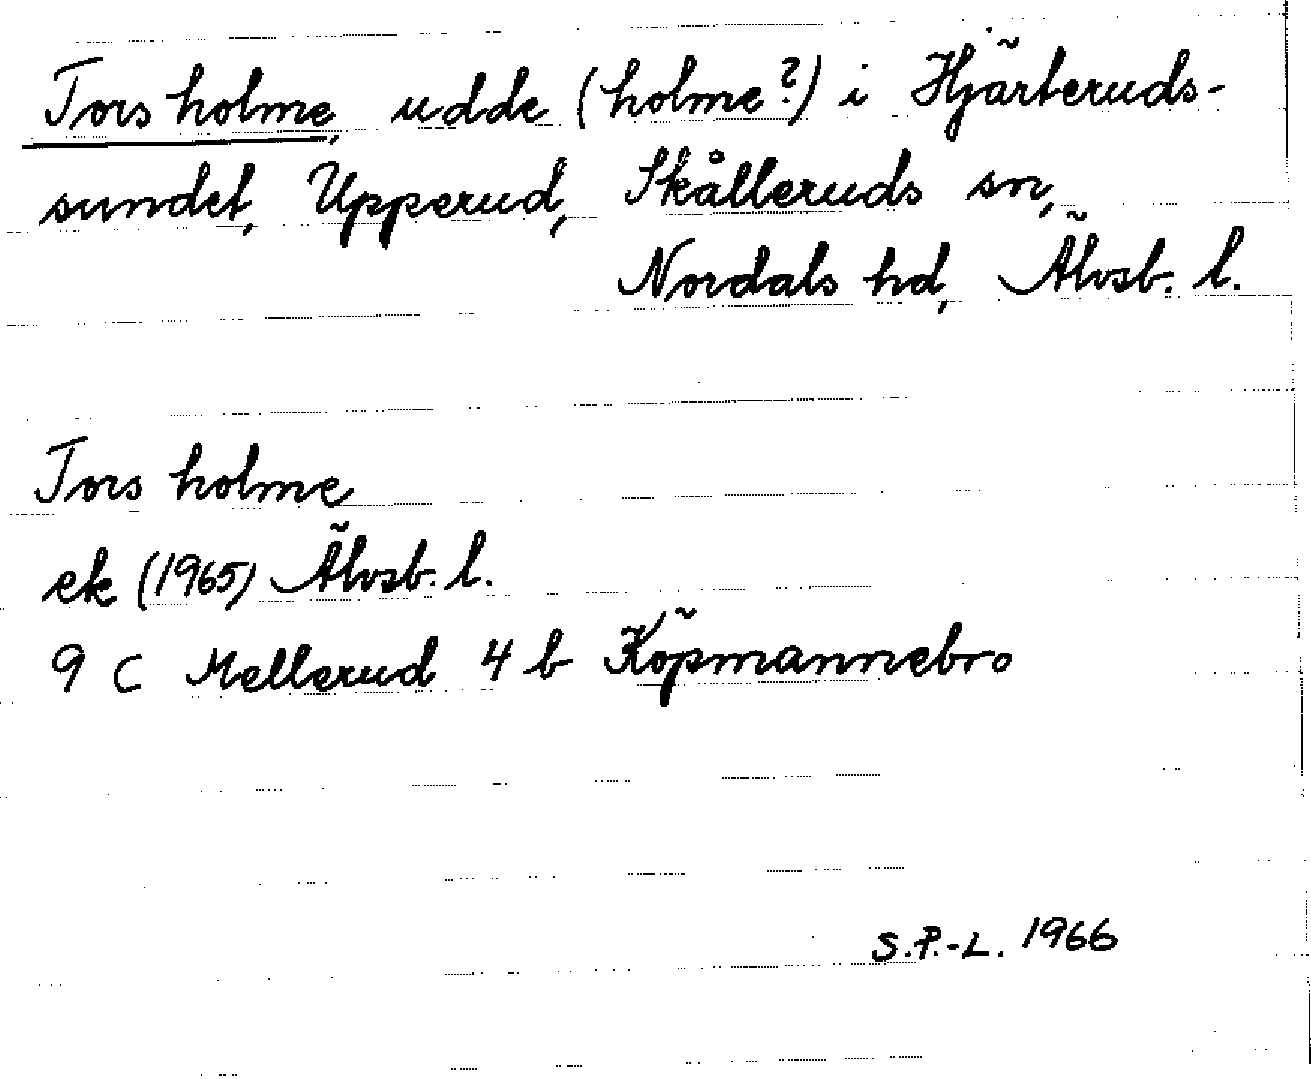 Tors holme, udde (holme?) i Hjärteruds-
sundet, Upperud, Skålleruds sn,
Nordals hd, Älvsb. l.
Tors holme
ek (1965) Älvsb. l.
9 C Mellerud 4 b Köpmannebro
S.P.-L. 1966